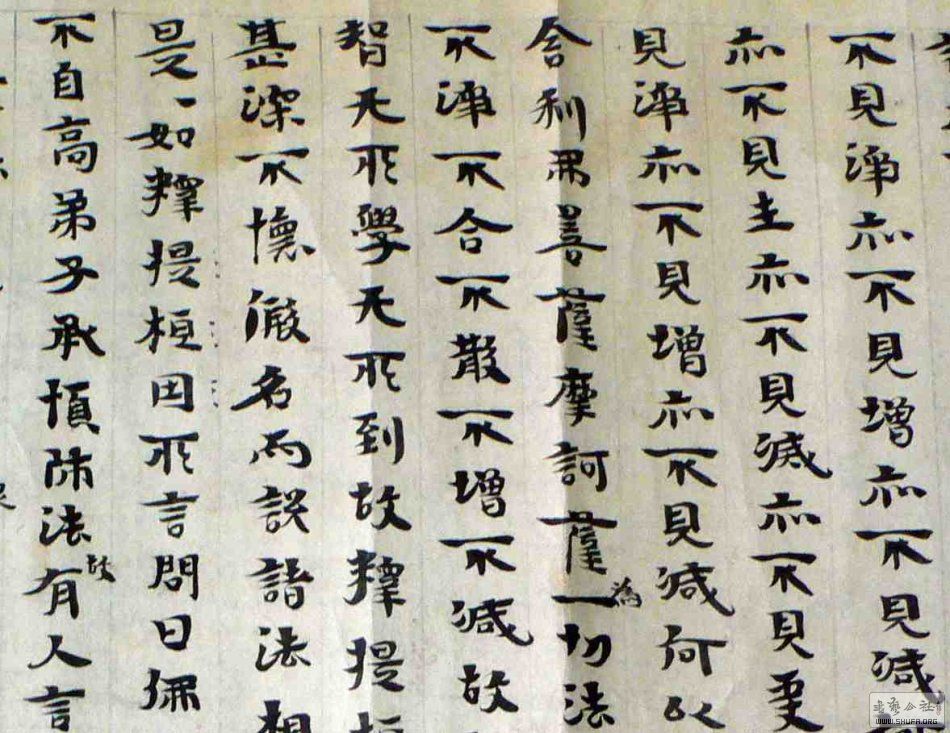 不見淨亦不見增亦不見減
亦不見生亦不見滅亦不見受
見淨亦不見增亦不見減何以
舍利弗菩薩摩訶薩為一切法
不淨不合不散不增不減故
智无所學无所到故釋提桓
甚深不懷假名而說諸法相
是〻如釋提桓因所言問曰佛
不自高弟子承順師法故有人言
WWW.SHUFA.ORG